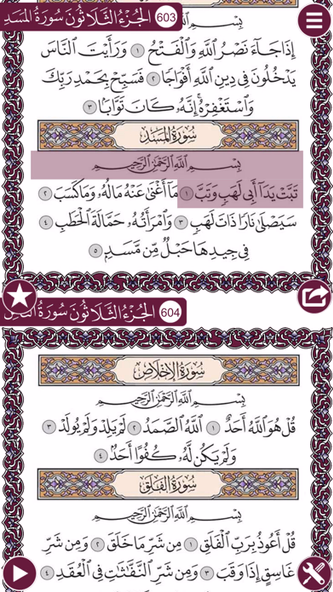 الجُزءُ الثَّلَاثُونَ سُورَةُ المَسَدِ 603
بِسْمِ اللَّهِ الرَّحْمَٰنِ الرَّحِيمِ
إِذَا جَاءَ نَصْرُ اللَّهِ وَالْفَتْحُ ١ وَرَأَيْتَ النَّاسَ
يَدْخُلُونَ فِي دِينِ اللَّهِ أَفْوَاجًا ٢ فَسَبِّحْ بِحَمْدِ رَبِّكَ
وَاسْتَغْفِرْهُ ۚ إِنَّهُ كَانَ تَوَّابًا ٣
سُورَةُ المَسَدِ
بِسْمِ اللَّهِ الرَّحْمَٰنِ الرَّحِيمِ
تَبَّتْ يَدَا أَبِي لَهَبٍ وَتَبَّ ١ مَا أَغْنَىٰ عَنْهُ مَالُهُ وَمَا كَسَبَ ٢
سَيَصْلَىٰ نَارًا ذَاتَ لَهَبٍ ٣ وَامْرَأَتُهُ حَمَّالَةَ الْحَطَبِ ٤
فِي جِيدِهَا حَبْلٌ مِّن مَّسَدٍ ٥
الجُزءُ الثَّلَاثُونَ سُورَةُ 604
سُورَةُ الإِخْلَاصِ
بِسْمِ اللَّهِ الرَّحْمَٰنِ الرَّحِيمِ
قُلْ هُوَ اللَّهُ أَحَدٌ ١ اللَّهُ الصَّمَدُ ٢ لَمْ يَلِدْ وَلَمْ يُولَدْ ٣
وَلَمْ يَكُن لَّهُ كُفُوًا أَحَدٌ ٤
سُورَةُ الفَلَقِ
بِسْمِ اللَّهِ الرَّحْمَٰنِ الرَّحِيمِ
قُلْ أَعُوذُ بِرَبِّ الْفَلَقِ ١ مِن شَرِّ مَا خَلَقَ ٢ وَمِن شَرِّ
غَاسِقٍ إِذَا وَقَبَ ٣ وَمِن شَرِّ النَّفَّاثَاتِ فِي الْعُقَدِ ٤